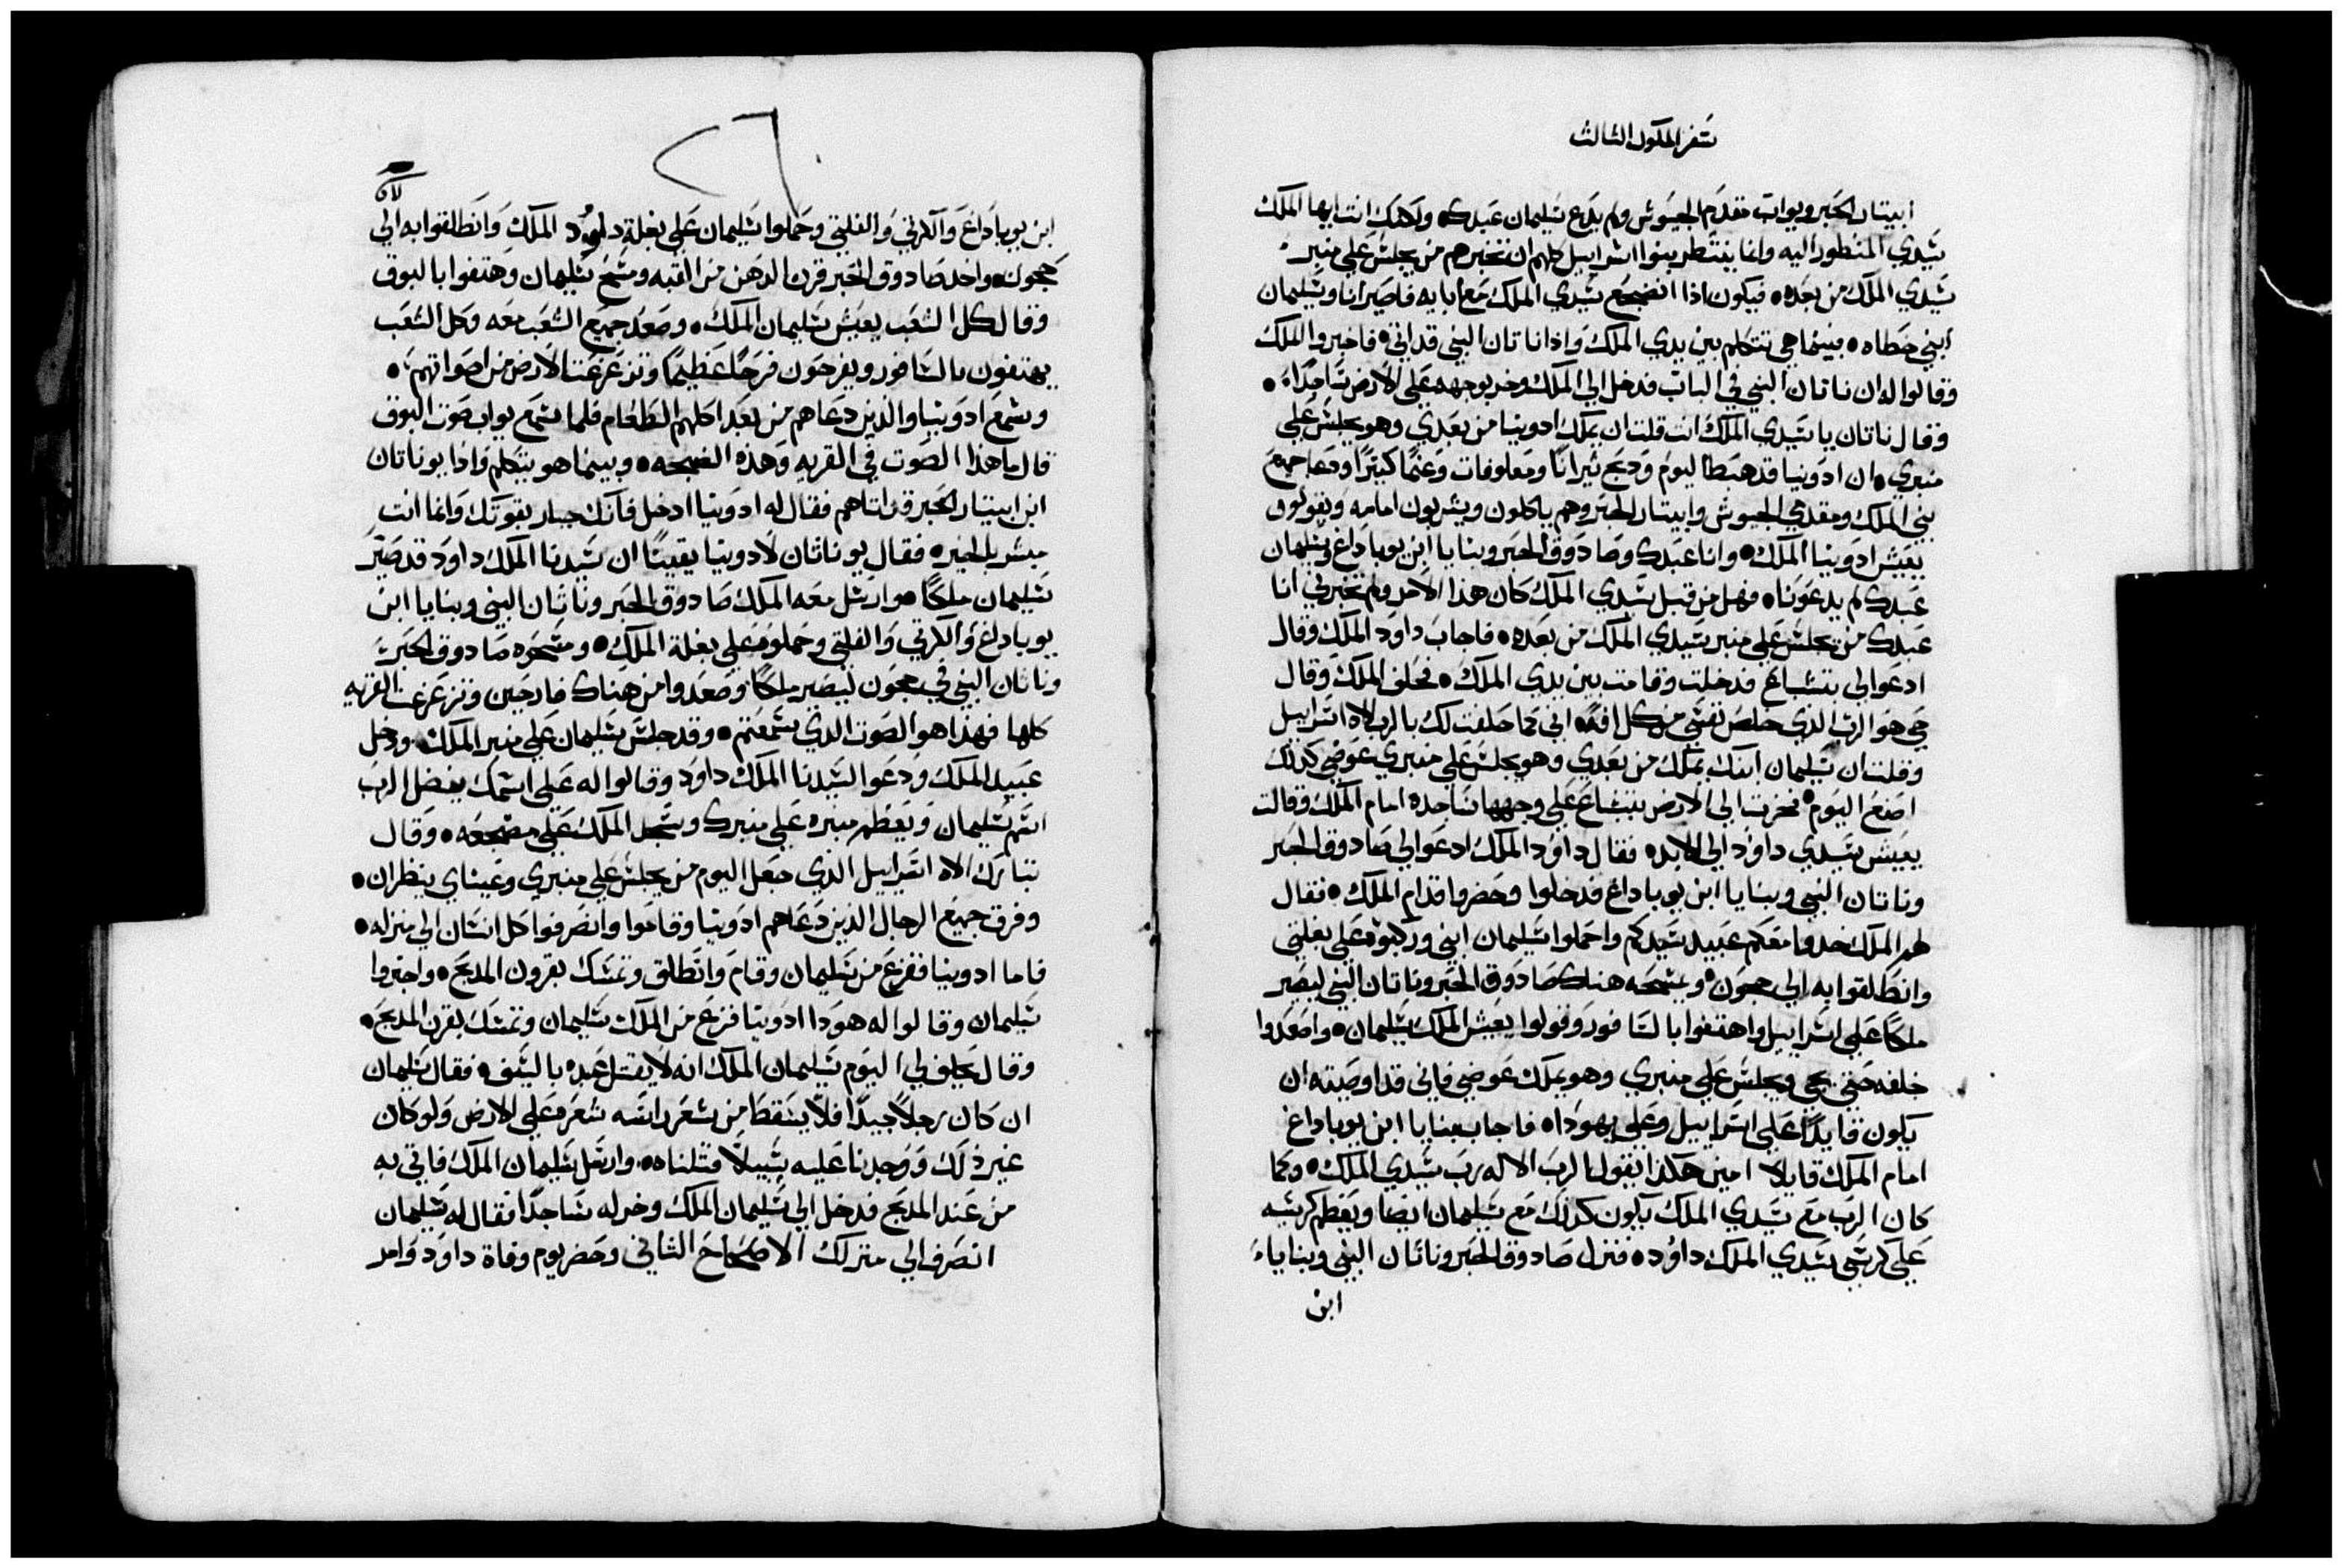 سفر الملوك الثالث
ابيتار الحبر ويواب مقدم الجيوش ولم يدع سليمان عبدك ولكنك انت ايها الملك
سيدي المنظور اليه وانما ينتظر بنوا اسراييل كلهم ان تخبرهم من يجلس علي منبر
سيدي الملك من بعده فيكون اذا انضجع سيدي الملك مع ابايه فاصير انا وسليمان
ابني خطاه بينما هي تتكلم بين يدي الملك واذا ناتان النبي قد اتي فاخبروا الملك
وقالوا له ان ناتان النبي في الباب فدخل الي الملك وخر بوجهه علي الارض ساجدا
وقال ناتان يا سيدي الملك انت قلت ان يملك ادونيا من بعدي وهو يجلس علي
منبري ان ادونيا قد هبط اليوم ودبح ثيرانا ومعلوفات وغنما كثيرا ودعا جميع
بني الملك ومقدمي الجيوش وابيتار الحبر وهم ياكلون ويشربون امامه ويقولون
يعيش ادونيا الملك وانا عبدك وصادوق الحبر وبنايا ابن يوياداع وسليمان
عبدك لم يدعونا فهل من قبل سيدي الملك كان هذا الامر ولم تخبرني انا
عبدك من يجلس علي منبر سيدي الملك من بعده فاجاب داود الملك وقال
ادعوا لي بتشابع فدخلت وقامت بين يدي الملك فحلف الملك وقال
حي هو الرب الذي خلص نفسي من كل افه اني كما حلفت لك بالرب الاه اسراييل
وقلت ان سليمان ابنك يملك من بعدي وهو يجلس علي منبري عوضي كذلك
اصنع اليوم فخرت الي الارض بتشابع علي وجهها ساجده امام الملك وقالت
يعيش سيدي داود الي الابد فقال داود الملك ادعوا لي صادوق الحبر
وناتان النبي وبنايا ابن يوياداع فدخلوا وحضروا قدام الملك فقال
لهم الملك خدوا معكم عبيد سيدكم واحملوا سليمان ابني وركبوه علي بغلتي
وانطلقوا به الي جيحون ويمسحه هناك صادوق الحبر وناتان النبي ليصير
ملكا علي اسراييل واهتفوا بالسافور وقولوا يعيش الملك سليمان واصعدوا
خلفه حتي يجي ويجلس علي منبري وهو يملك عوضي فاني قد اوصيته ان
يكون قايدا علي اسراييل وعلي يهودا فاجاب بنايا ابن يوياداع
امام الملك قايلا امين هكذا يقول الرب الاله رب سيدي الملك وكما
كان الرب مع سيدي الملك يكون كذلك مع سليمان ايضا ويعظم كرسيه
علي كرسي سيدي الملك داود فنزل صادوق الحبر وناتان النبي وبنايا
ابن
ابن يوياداع والكرتي والفلتي وحملوا سليمان علي بغلة داوود الملك وانطلقوا به الي
جيحون واخد صادوق الحبر قرن الدهن من القبه ومسح سليمان وهتفوا بالبوق
وقال كل الشعب يعيش سليمان الملك وصعد جميع الشعب معه وكل الشعب
يهتفون بالسافور ويفرحون فرحا عظيما وتزعزعت الارض من اصواتهم
وسمع ادونيا والذين دعاهم من بعد اكلهم الطعام فلما سمع يواب صوت البوق
قال ما هذا الصوت في القريه وهذه الضجحه وبينما هو يتكلم واذا يوناتان
ابن ابيتار الحبر قد اتاهم فقال له ادونيا ادخل فانك جبار بقوتك وانما انت
مبشر بالخير فقال يوناتان لادونيا يقينا ان سيدنا الملك داود قد صير
سليمان ملكا وارسل معه الملك صادوق الحبر وناتان النبي وبنايا ابن
يوياداع والكرتي والفلتي وحملوه علي بغلة الملك ومسحوه صادوق الحبر
وناتان النبي في جيحون ليصير ملكا وصعدوا من هناك فارحين وتزعزعت القريه
كلها فهذا هو الصوت الذي سمعتم وقد جلس سليمان علي منبر الملك ودخل
عبيد الملك ودعوا لسيدنا الملك داود وقالوا له علي اسمك يفضل الرب
اسم سليمان ويعظم منبره علي منبرك وسجد الملك علي مضجعه وقال
تبارك الاه اسراييل الذي جعل اليوم من يجلس علي منبري وعيناي ينظران
وفرق جميع الرجال الذين دعاهم ادونيا وقاموا وانصرفوا كل انسان الي منزله
فاما ادونيا ففزع من سليمان وقام وانطلق وتمسك بقرون المدبح واخبروا
سليمان وقالوا له هودا ادونيا فزع من الملك سليمان وتمسك بقرن المدبح
وقال يحلف لي اليوم سليمان الملك انه لا يقتل عبده بالسيف فقال سليمان
ان كان رجلا جيدا فلا يسقط من شعر راسه شعره علي الارض ولو كان
غير ذلك ووجدنا عليه سبيلا قتلناه وارسل سليمان الملك فاتي به
من عند المدبح فدخل الي سليمان الملك وخر له ساجدا فقال له سليمان
انصرف الي منزلك الاصحاح الثاني وحضر يوم وفاة داود وامر